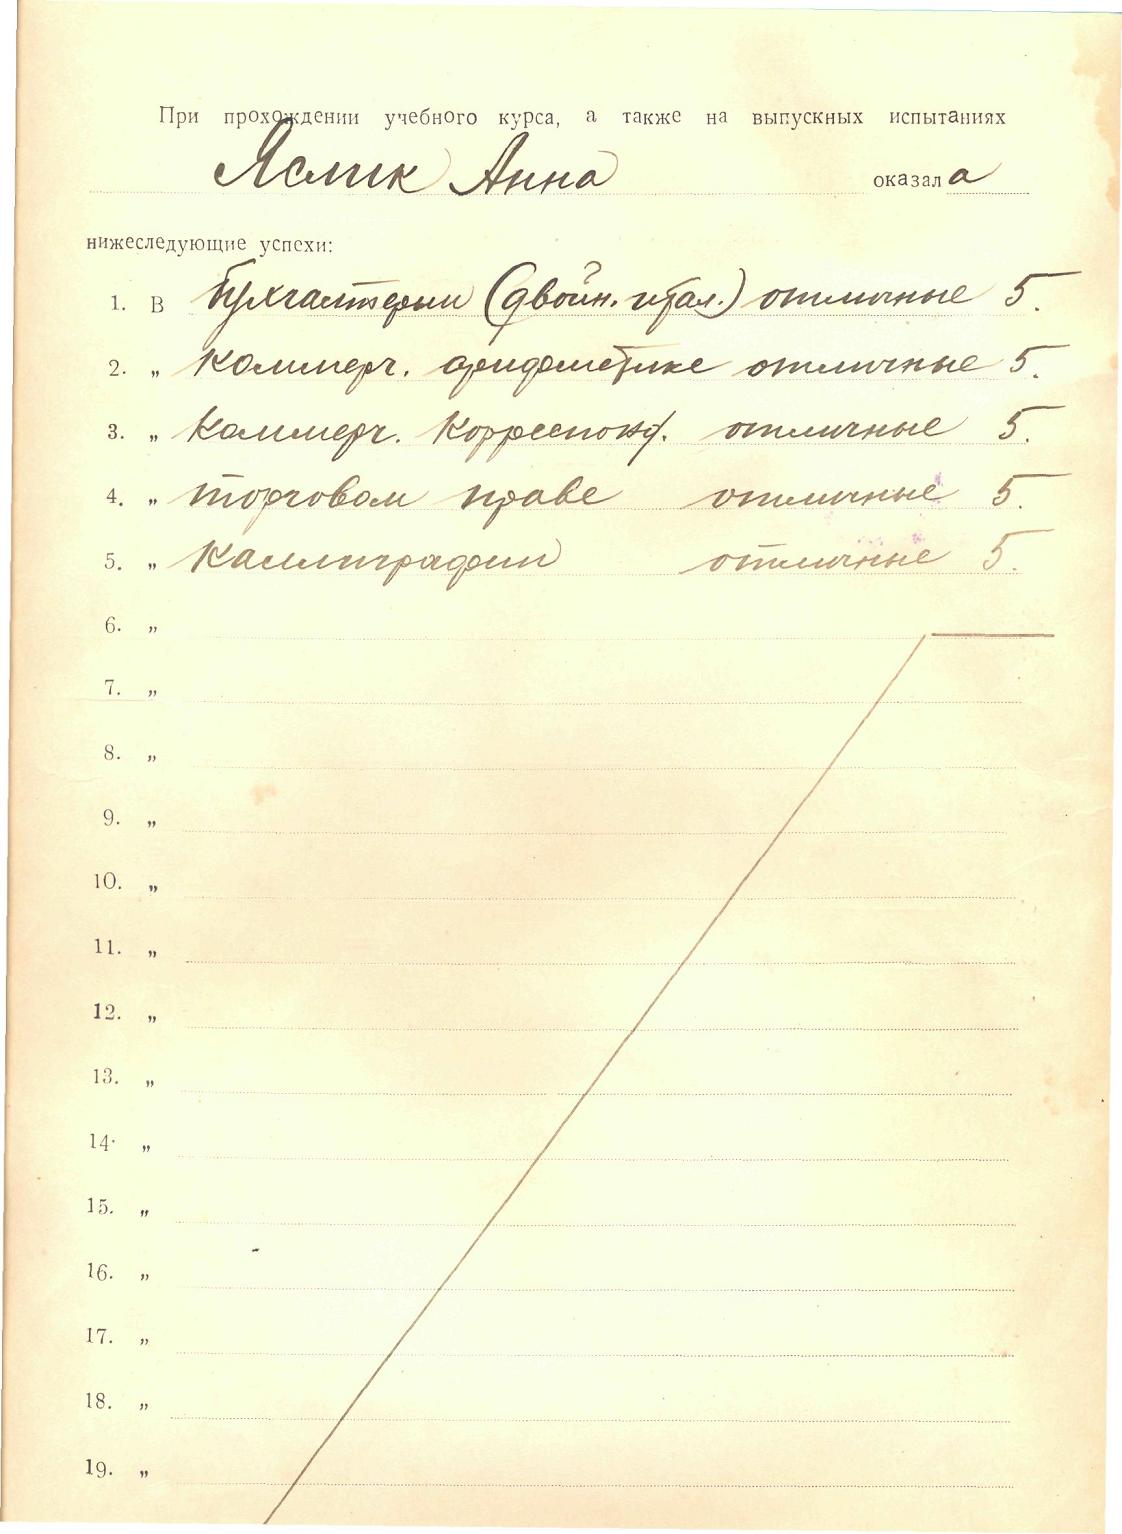 При прохождении учебного курса, а также на выпускных испытаниях
Яслик Анна оказала
нижеследующие успехи:
1. В бухгалтерии (двойн. итал.) отличные 5.
2. „ Коммерч. арифметике отличные 5.
3. „ Коммерч. Корреспонд. отличные 5.
4. „ торговом праве отличные 5.
5. „ Каллиграфии отличные 5.
6. „
7. „
8. „
9. „
10. „
11. „
12. „
13. „
14. „
15. „
16. „
17. „
18. „
19. „